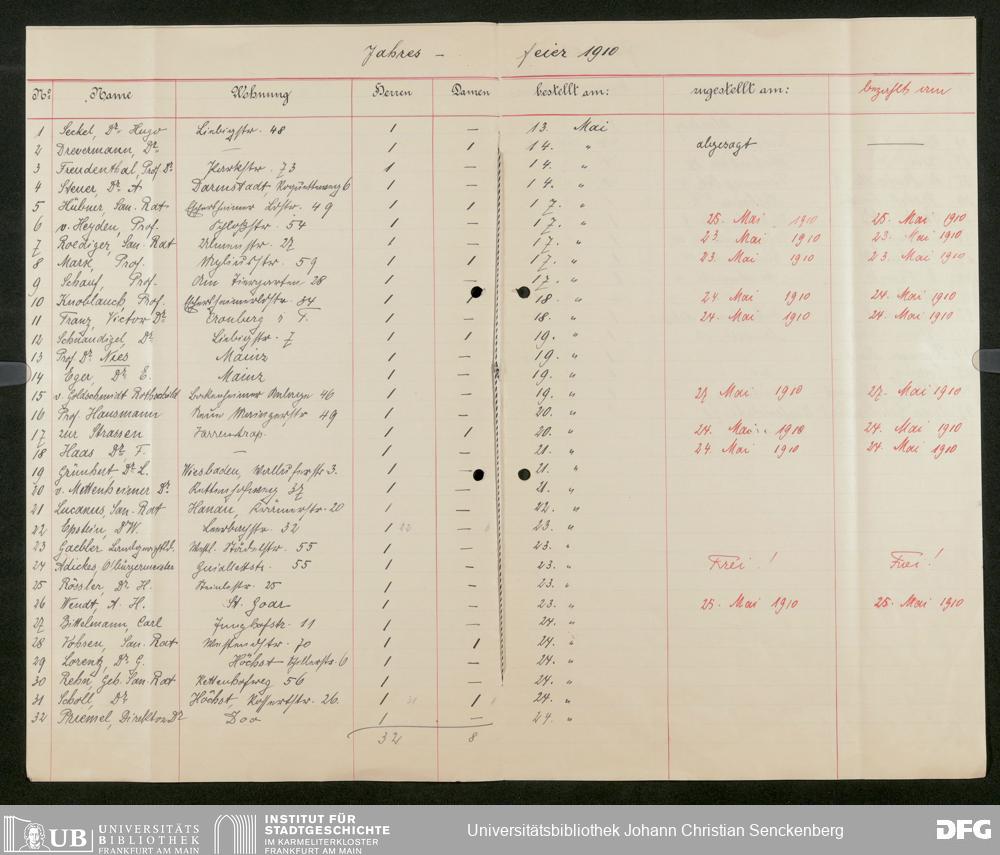 Jahres – feier 1910
No. Name Wohnung Herren Damen bestellt am: zugestellt am: bezahlt am
1 Seckel, Dr. Hugo Liebigstr. 48 1 — 13. Mai
2 Drevermann, Dr. — 1 1 14. " abgesagt —
3 Freudenthal, Prof. Dr. Parkstr. 73 1 — 14. "
4 Steuer, Dr. A Darmstadt, 6 1 — 14. "
5 Hübner, San. Rat Eschersheimer Ldstr. 49 1 1 17. "
6 v. Heyden, Prof. Schloßstr. 54 1 — 17. " 25. Mai 1910 25. Mai 1910
7 Roediger, San. Rat Ulmenstr. 27 1 — 17. " 23. Mai 1910 23. Mai 1910
8 Marx, Prof. Myliusstr. 59 1 1 17. " 23. Mai 1910 23. Mai 1910
9 Schauf, Prof. Am Tiergarten 28 1 — 17. "
10 Knoblauch Prof. Eschersheimerldstr. 34 1 18. " 24. Mai 1910 24. Mai 1910
11 Franz, Victor Dr. Cronberg i T. 1 — 18. " 24. Mai 1910 24. Mai 1910
12 Schnaudigel, Dr. Liebigstr. 7 1 1 19. "
13 Prof. Dr. Nies Mainz 1 — 19. "
14 Eger, Dr. E. Mainz 1 — 19. "
15 v. Goldschmidt Rothschild Bockenheimer Anlage 46 1 — 19. " 27. Mai 1910 27. Mai 1910
16 Prof. Hausmann Neue Mainzerstr 49 1 — 20. "
17 zur Strassen Varrentrap. 1 1 20. " 24. Mai. 1910 24. Mai 1910
18 Haas Dr. F. — 1 — 21. " 24. Mai 1910 24. Mai 1910
19 Grünhut, Dr. L. Wiesbaden, 3. 1 — 21. "
20 v. Mettenheimer Dr. 37 1 — 21. "
21 Lucanus, San. Rat Hanau, Krämerstr. 20 1 — 22. "
22 Epstein, Dr W. Leerbachstr. 32 1 22 — 23. "
23 Gaebler Landgerichtsd. Westl. Städelstr. 55 1 — 23. "
24 Adickes, O/Bürgermeister Guiollettstr. 55 1 — 23. " Frei! Frei!
25 Rössler, Dr. H. 25 1 — 23. "
26 Wendt, A. H. St. Goar 1 — 23. " 25. Mai 1910 25. Mai 1910
27 Bittelmann, Carl Junghofstr. 11 1 — 24. "
28 Vohsen, San. Rat Westendstr. 70 1 1 24. "
29 Lorentz, Dr. G. Höchst 6 1 — 24. "
30 Rehn, Geh. San. Rat Kettenhofweg 56 1 — 24. "
31 Scholl, Dr Höchst, 26. 1 31 1 24. "
32 Priemel, Direktor Dr Zoo 1 — 24. "
32 8
UB UNIVERSITÄTS BIBLIOTHEK FRANKFURT AM MAIN
INSTITUT FÜR STADTGESCHICHTE IM KARMELITERKLOSTER FRANKFURT AM MAIN
Universitätsbibliothek Johann Christian Senckenberg
DFG